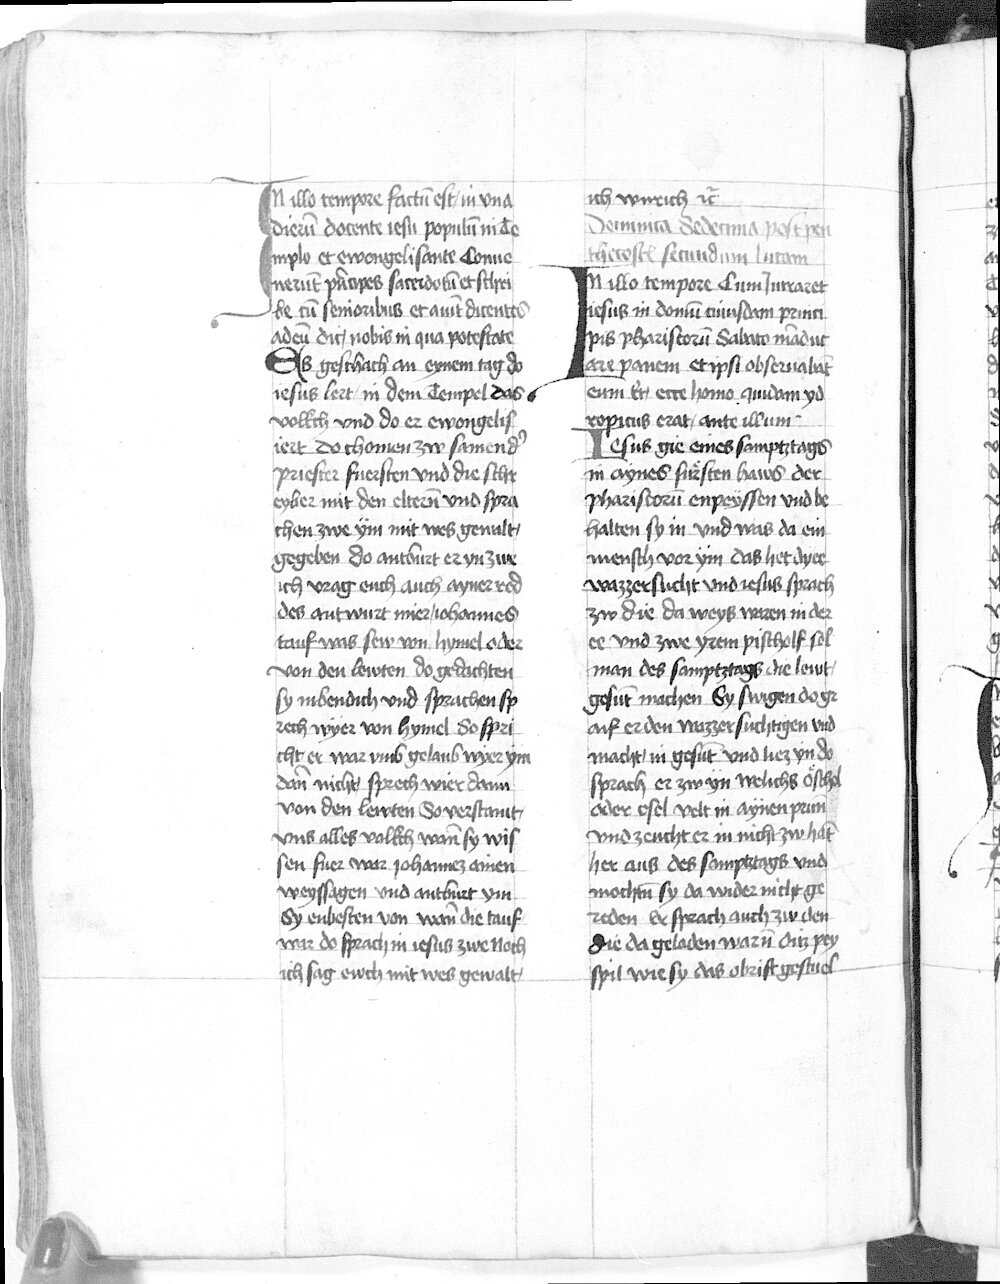 IN illo tempore factū est in vna
dierū docente iesu populū in Te
mplo et ewongelisante Conue
nerūt pⁿcipes sacerdotū et schri
be cū senioribus et aiūt dicentes
adeū dic nobis in qua potestate
Es geschach an eynem tag do
iesus lert in dem Tempel das
volkch vnd do er ewongelis
iert Do chomen zw samend
Priester fuersten vnd die schr
eyber mit den elterñ vnd spra
chen zwe ÿm mit wes gewalt
gegeben Do antburt er yn zwe
ich vrag euch auch ayner red
des antwurt mier iohannes
tauf was sew von hymel oder
von den lewten do gedachten
sy inbendich vnd sprachen sp
rech wÿer von hymel So spri
cht er war vmb gelaub wyer ym
dañ nicht sprech wier dann
von den lewten So verstaint
vns alles volkch wañ sy wis
sen fuer war Johannez ainen
weyssagen vnd antburt ym
Sy enbesten von wañ die tauf
war do sprach in iesus zwe Noch
ich sag ewch mit wes gewalt
ich wurich ꝛc̄
Dominica Sedecima post pen
thecosten secundum lucam
IN illo tempore Cum Intraret
iesus in domū cuiusdam princi
pis phariseorū Sabato māduc
are panem et ipsi obseruabāt
eum Et ecce homo quidam yd
ropicus erat ante illum
Iesus gie eines samptztags
in aynes fürsten haws der
phariseorū enpeyssen vnd be
halten sy in vnd was da ein
mensch vor ÿm das het dyee
wazzersucht vnd iesus sprach
zw die da weys waren in der
ee vnd zwe yrem pischolf sol
man des samptztags die lewt
gesūt machen Sy swigen do gr
aif er den wazzersuchtigen vnd
macht in gesūt vnd liez yn do
sprach er zw yn welichs öschel
oder esel velt in aÿnen prunn
vnd zeucht er in nicht zw hāt
her aus des samptztags vnd
mochtn sy da wider nicht ge
reden Er sprach auch zw den
die da geladen warñ ditz pey
spil wie sy das obrist gestuel